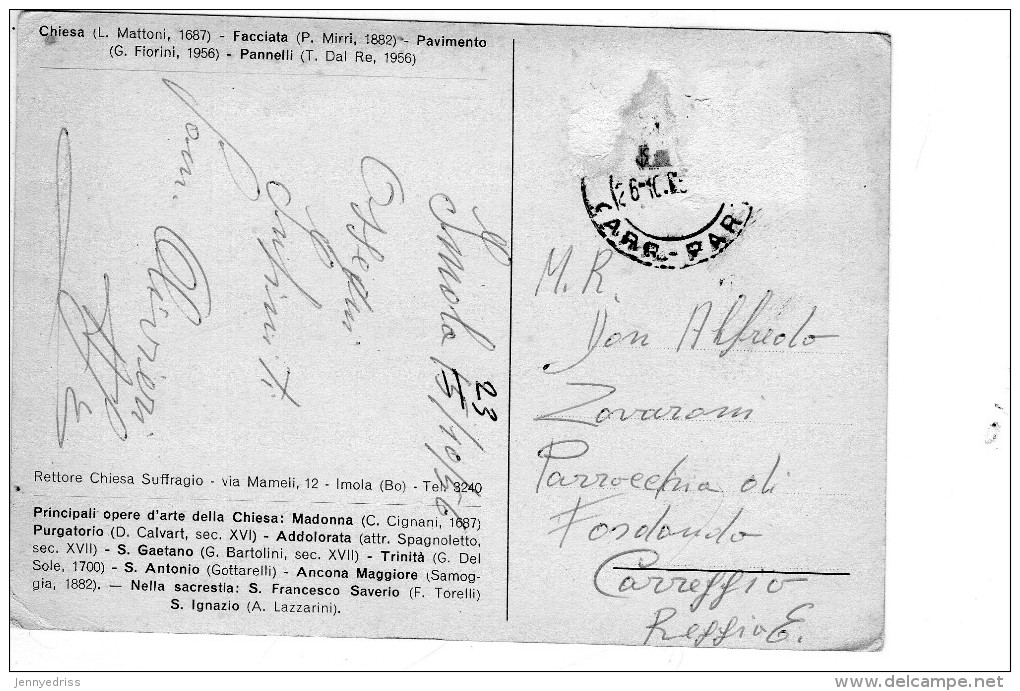 Chiesa (L. Mattoni, 1687) - Facciata (P. Mirri, 1882) - Pavimento
(G. Fiorini, 1956) - Pannelli (T. Dal Re, 1956)
Imola 23/10/56
Ossequi
Saluti
Rettore Chiesa Suffragio - via Mameli, 12 - Imola (Bo) - Tel. 3240
Principali opere d'arte della Chiesa: Madonna (C. Cignani, 1687)
Purgatorio (D. Calvart, sec. XVI) - Addolorata (attr. Spagnoletto,
sec. XVII) - S. Gaetano (G. Bartolini, sec. XVII) - Trinità (G. Del
Sole, 1700) - S. Antonio (Gottarelli) - Ancona Maggiore (Samog-
gia, 1882). — Nella sacrestia: S. Francesco Saverio (F. Torelli)
S. Ignazio (A. Lazzarini).
ARR.-PAR
M. R.
Don Alfredo
Zovaroni
Parrocchia di
Fosdondo
Correggio
Reggio E.
jennyedriss
delcampe.net